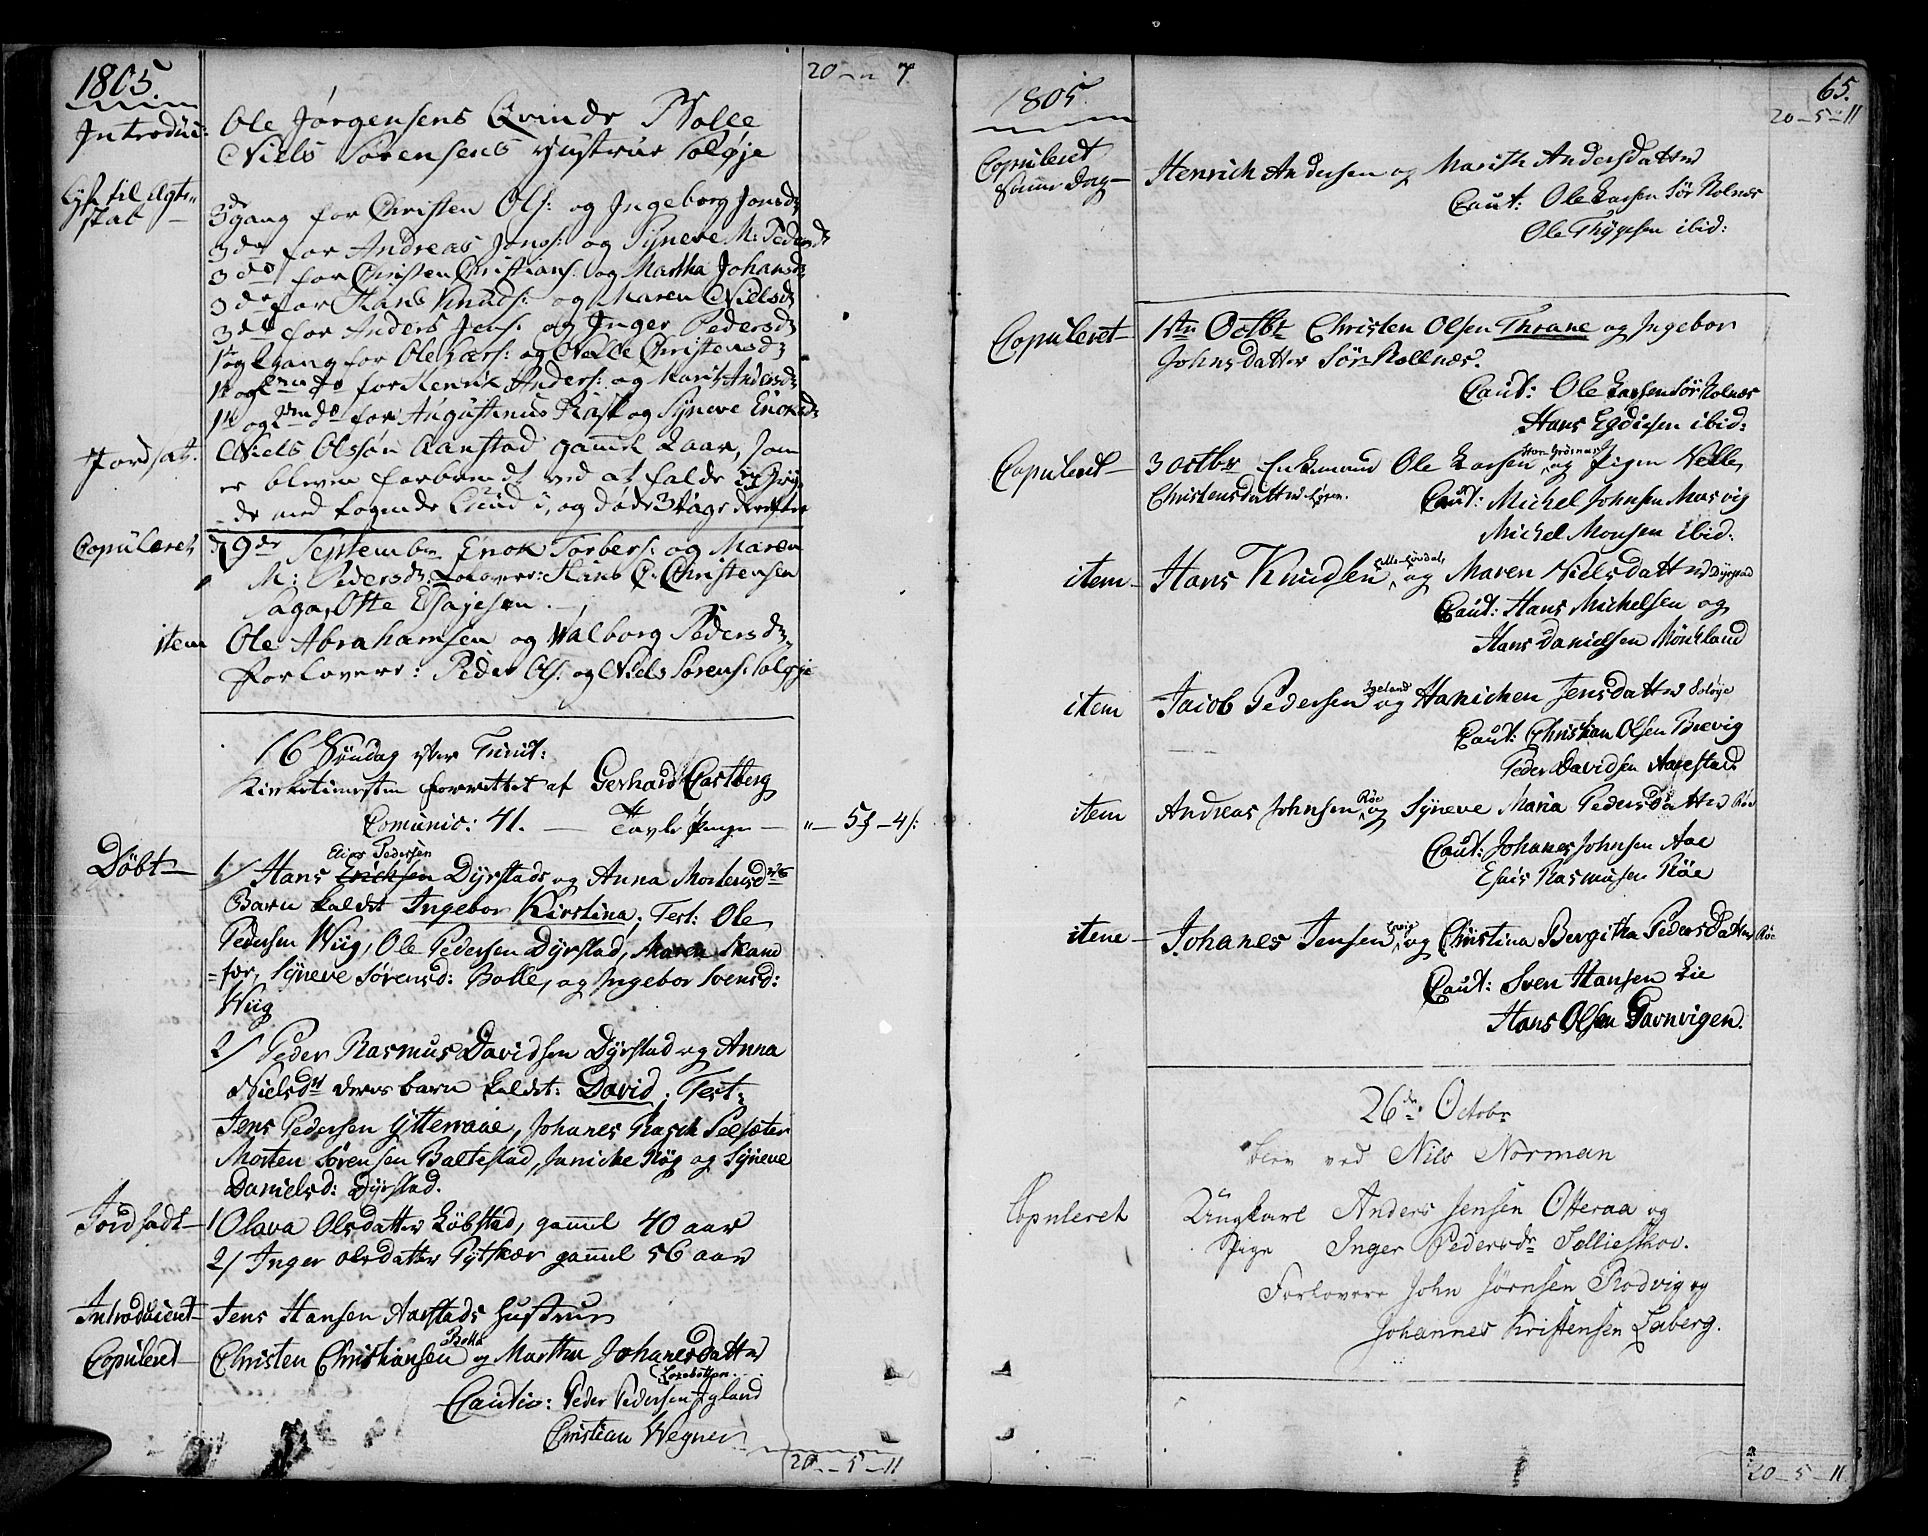 1805.
20 — " 7.
Introduc: Ole Jørgensens Qvinde Bolle
Niels Sørensens Hustrue Soløje
Lyst til Ægte-
stab — 3de gang for Christen Ols: og Ingeborg Jonsd
3 do for Andreas Jons: og Syneve M: Pedersd
3 do for Christen Christians: og Martha Johansd
3 do for Hans Knuds: og Maren Nielsd
3 do for Anders Jens: og Inger Pedersd
1 og 2 gang for Ole Lars: og Nelle Christensd
1 og 2 do for Henrik Anders: og Marit Andersd
1 og 2 do for Augustinus Rask og Syneve Enoksd
Jordsat. Niels Olssøn Aanstad gammel 2 aar, som
er bleven forbrendt ved at falde i Gry-
de med kogende Lud i, og døde 3 dage derefter
Copuleret 29de September Enok Torbers: og Maren
M: Pedersd: Lolover: Hans C. Christensen
Saga, Otte Esajesen.
item Ole Abrahamsen og Walborg Pedersd
Forlovere: Peder Ols: og Niels Sørens: Soløje
16 Søndag efter Trinit:
Kirketienesten forrettet af Gerhard Castberg
Comunic: 41. — Tavle Penge — " — 5 — 4 s:
Elias Pedersen
Døbt — 1/ Hans Erichsen Dyrstads og Anna Mortensd
Barn kaldet Ingebor Kirstina, Test: Ole
Pedersen Wiig, Ole Pedersen Dyrstad, Maren Skand
=fer, Syneve Sørensd: Bolle, og Ingebor Svensd:
Wiig
2/ Peder Rasmus Davidsen Dyrstad og Anna
Nielsd deres barn kaldet: David, Test:
Jens Pedersen Ytteraae, Johanes Rasch Selseter
Morten Sørensen Baltestad, Janicke Røg og Syneve
Danielsd: Dyrstad.
Jordsadt — 1 Olava Olsdatter Løbstad, gamel 40 aar
2/ Inger Olsdatter Pytskær gamel 56 aar
Introduceret — Jens Hansen Aarstads Hustrue
Bolle
Copuleret — Christen Christiansen og Martha Johanesdatter
Caution: Peder Pedersen Igland
Christian Wegner
20 — 5 — 11
1805.
65.
20 — 5 — 11
Copuleret
samme Dag — Henrich Andersen og Marith Andersdatter
Caut: Ole Larsen Sør Rolnes
Ole Thygesen ibid:
Copuleret — 1ste Octbr Christen Olsen Thrane og Ingebor
Johnsdatter Sør Rollnæs.
Caut: Ole Larsen Sør Rolnes
Hans Egdiesen ibid:
Copuleret — 3 Octbr Enkemand Ole Larsen og Pigen Nelle
Christensdatter Caut: Michel Johnsen Masvig
Michel Monsen ibid:
item — Hans Knudsen og Maren Nielsdatter Dyrstad
Caut: Hans Michelsen og
Hans Danielsen Mönkland
item Jacob Pedersen Igeland og Hanichen Jensdatter Soløye
Caut: Christian Olsen Brevig
Peder Davidsen Aarestad
item Andreas Johnsen Röe og Syneve Maria Pedersdatter Röe
Caut: Johanes Johnsen Aae
Esais Rasmusen Röe
item — Johanes Jensen og Christina Bergitha Pedersdatter Röe
Caut: Sven Hansen Lie
Hans Olsen Gavnvigen.
26de Octobr
blev ved Nils Norman
Copuleret Ungkarl Anders Jensen Otteraa og
Pige Inger Pedersdr Sellieskov.
Forlovere John Jörnsen Rodvig og
Johannes Kristensen Laberg.
20 — 5 — 11